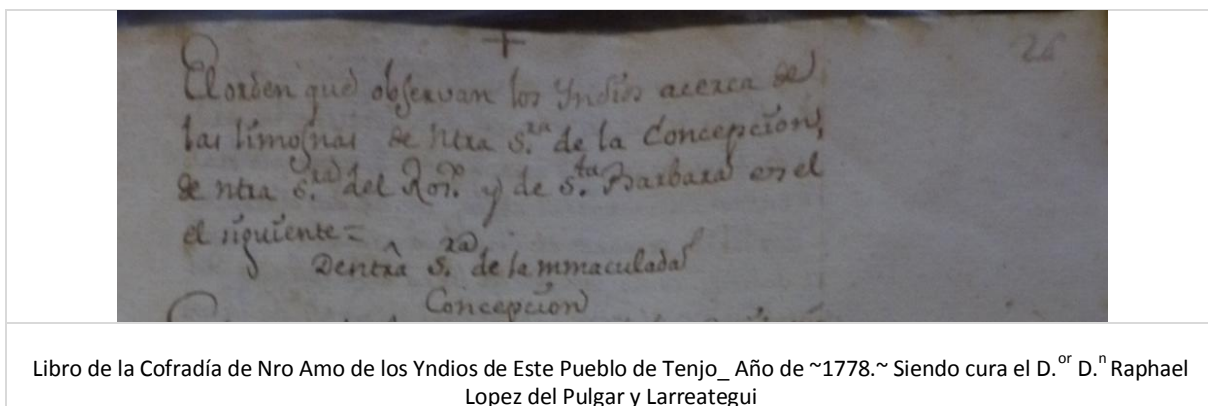 26
El orden que observan los Yndios acerca de
las limosnas de Ntra S.ra de la Concepcion,
de ntra S.ra del Ros.o y de S.ta Barbara es el
el siguiente =
De ntra S.ra de la mmaculada
Concepcion
Libro de la Cofradía de Nro Amo de los Yndios de Este Pueblo de Tenjo_ Año de ~1778.~ Siendo cura el D.or D.n Raphael
Lopez del Pulgar y Larreategui